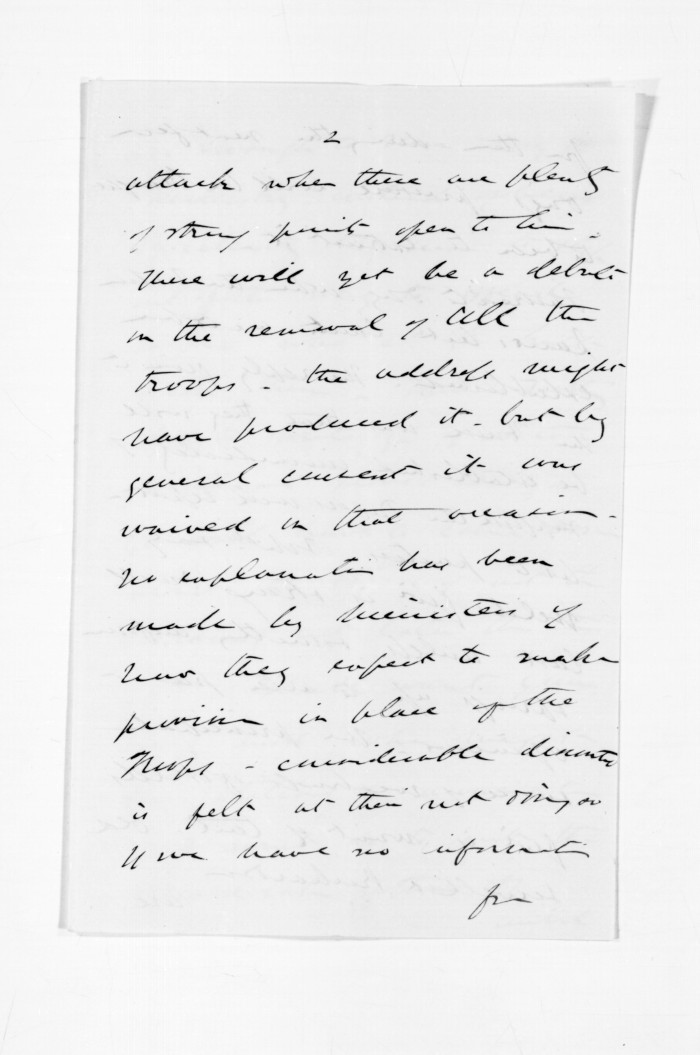 2
attack when there are plenty
of strong points open to him.
There will yet be a debate
on the removal of all the
troops - the address might
have produced it - but by
general consent it was
waived on that occasion -
No explanation has been
made by Ministers of
how they expect to make
provision in place of the
Troops - considerable discontent
is felt at their not doing so
& we have no information
for